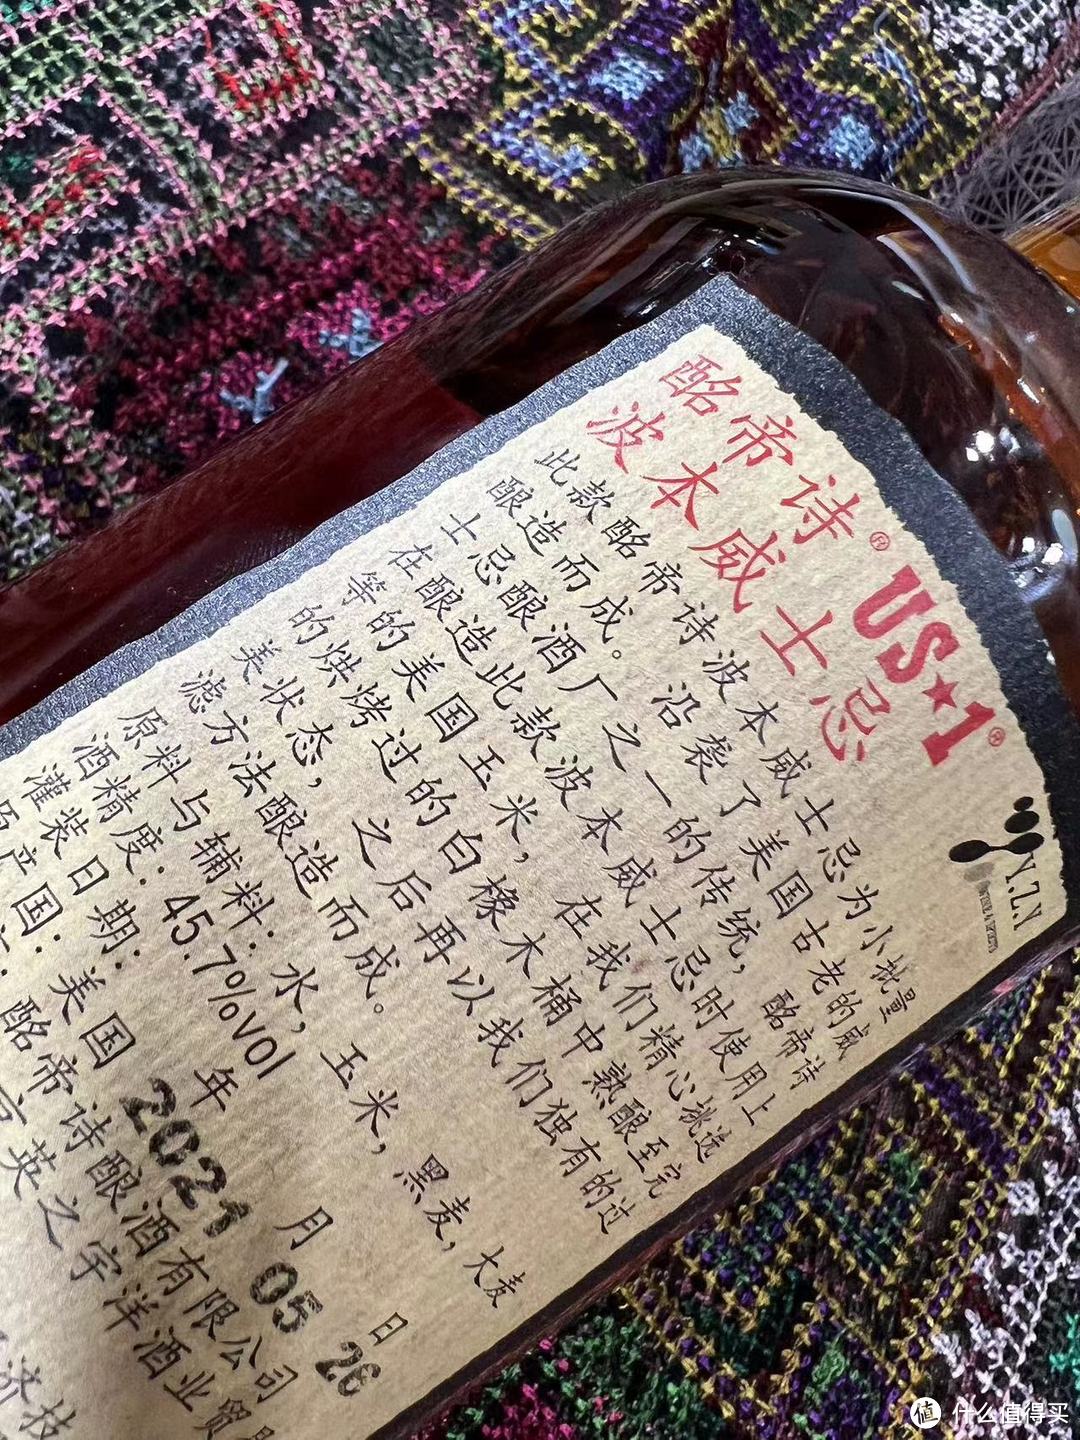 酩帝诗® US★1®
波本威士忌
Y.Z.Y
此款酩帝诗波本威士忌为小批量
酿造而成。沿袭了美国古老的威
士忌酿酒厂之一的传统，酩帝诗
在酿造此款波本威士忌时使用上
等的美国玉米，在我们精心挑选
的烘烤过的白橡木桶中熟酿至完
美状态，之后再以我们独有的过
滤方法酿造而成。
原料与辅料：水，玉米，黑麦，大麦
酒精度：45.7%vol
灌装日期： 年 月 日
2021 05 26
原产国：美国
酩帝诗酿酒有限公司
英之宇洋酒业贸
济技
值 什么值得买